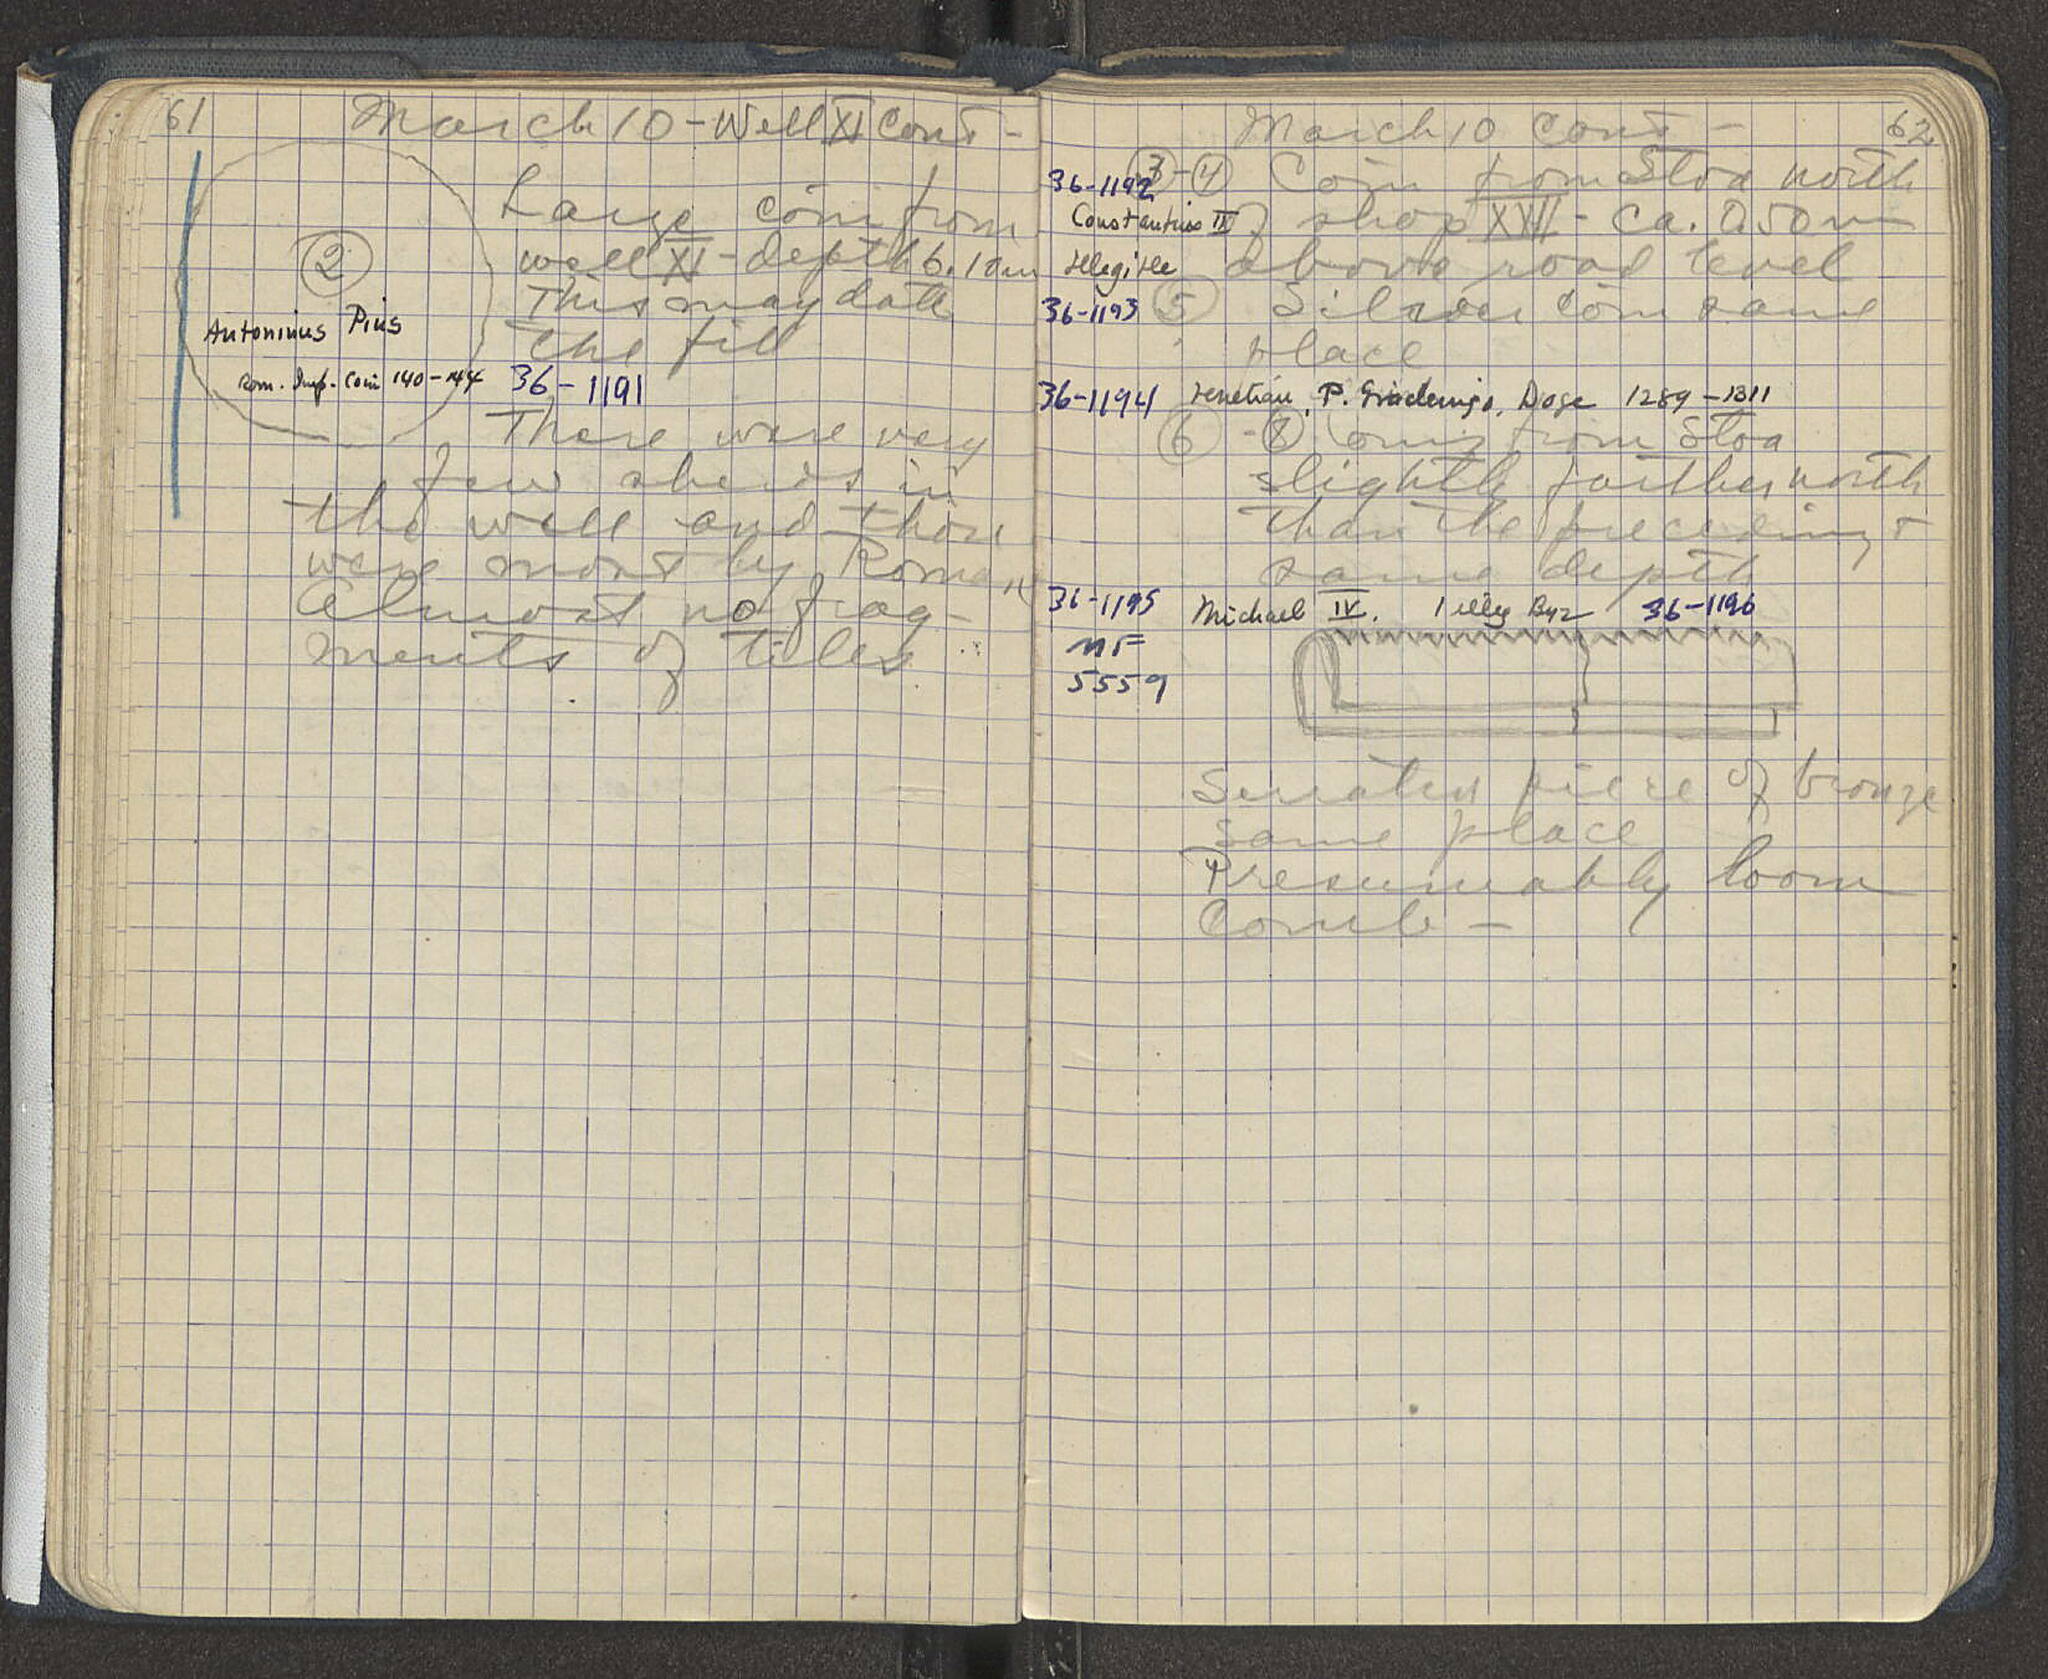 61
March 10 - Well XI Cont -
Large coin from
well XI - depth 6.10 m
This may date
the fill
2
Antoninus Pius
Rom. Imp. Coin 140-144
36-1191
There were very
few sherds in
the well and those
were mostly Roman
Almost no frag-
ments of tiles
62
March 10 Cont -
36-1192 3 - 4 Coin from Stoa north
Constantius II of shop XXII - ca. 0.50 m
Illegible above road level
36-1193 5 Silver coin same
place
36-1194 Venetian, P. Gradenigo, Doge 1289-1311
6 - 8 Coins from Stoa
slightly farther north
than the preceding +
same depth
36-1195 Michael IV. 1 illeg Byz 36-1196
MF
5559
Serrated piece of bronze
same place
Presumably loom
comb -